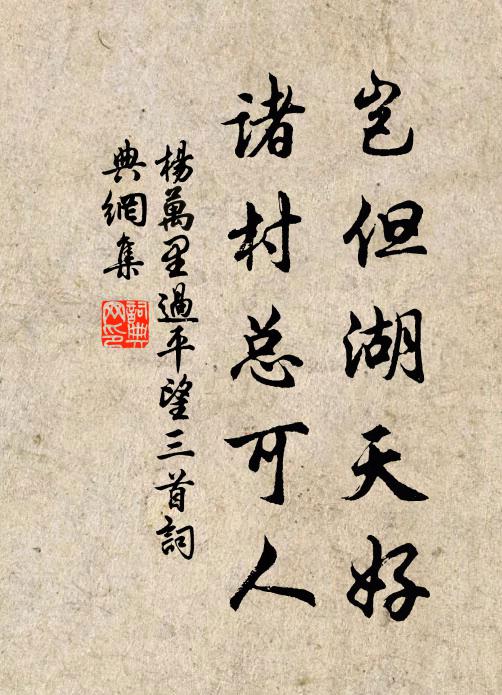 岂但湖天好
诸村总可人
楊萬里過平望三首詞
典網集
詞典
网印